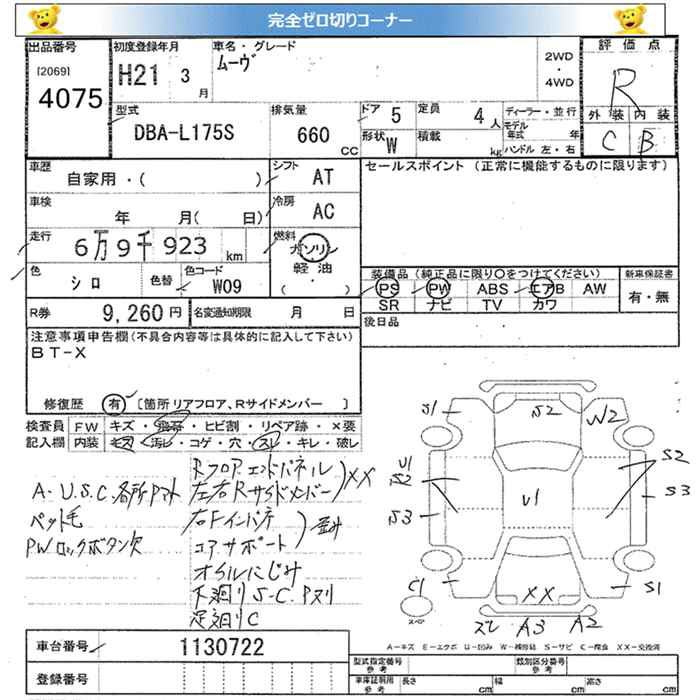 完全ゼロ切りコーナー
出品番号 初度登録年月 車名・グレード 評価点
[2069] ムーヴ 2WD
4075 H21 3月 ・4WD R
型式 排気量 ドア 5 定員 4人 ディーラー・並行 外装 内装
DBA-L175S 660cc 形状 W 積載 kg モデル年式 年 C B
ハンドル 左・右
車歴 自家用・( ) シフト AT セールスポイント (正常に機能するものに限ります)
車検 年 月( 日) 冷房 AC
走行 6万9千923km 燃料 ガソリン
軽油・( )
色 シロ 色替 色コード W09 装備品 (純正品に限り○をつけてください) 新車保証書
PS PW ABS エアB AW 有・無
SR ナビ TV カワ
R券 9,260円 名変通知期限 月 日 後日品
注意事項申告欄(不具合内容等は具体的に記入して下さい)
BT-X
修復歴 有 〔箇所 リアフロア、Rサイドメンバー 〕
検査員 FW キズ・ ・ヒビ割・リペア跡・×要
記入欄 内装 キズ・汚レ・コゲ・穴・スレ・キレ・破レ
Rフロアエンドパネル
左右Rサイドメンバー ) XX
A.U.S.C.各所Pマト
ペット毛
右Fインパネ
コアサポート ) 歪み
PWロックボタン欠
オイルにじみ
下廻りS-C.Pヌリ
足廻りC
S1 S2 W2
U1 S2 S2
S3 U1 S3
C1 XX S1
スペア スレ A3 A2
A-キズ E-エクボ U-凹み W-補修跡 S-サビ C-腐食 XX-交換済
車台番号 1130722
登録番号
型式指定番号 参考 類別区分番号 参考
車庫証明用 参考 長さ cm 幅 cm 高さ cm